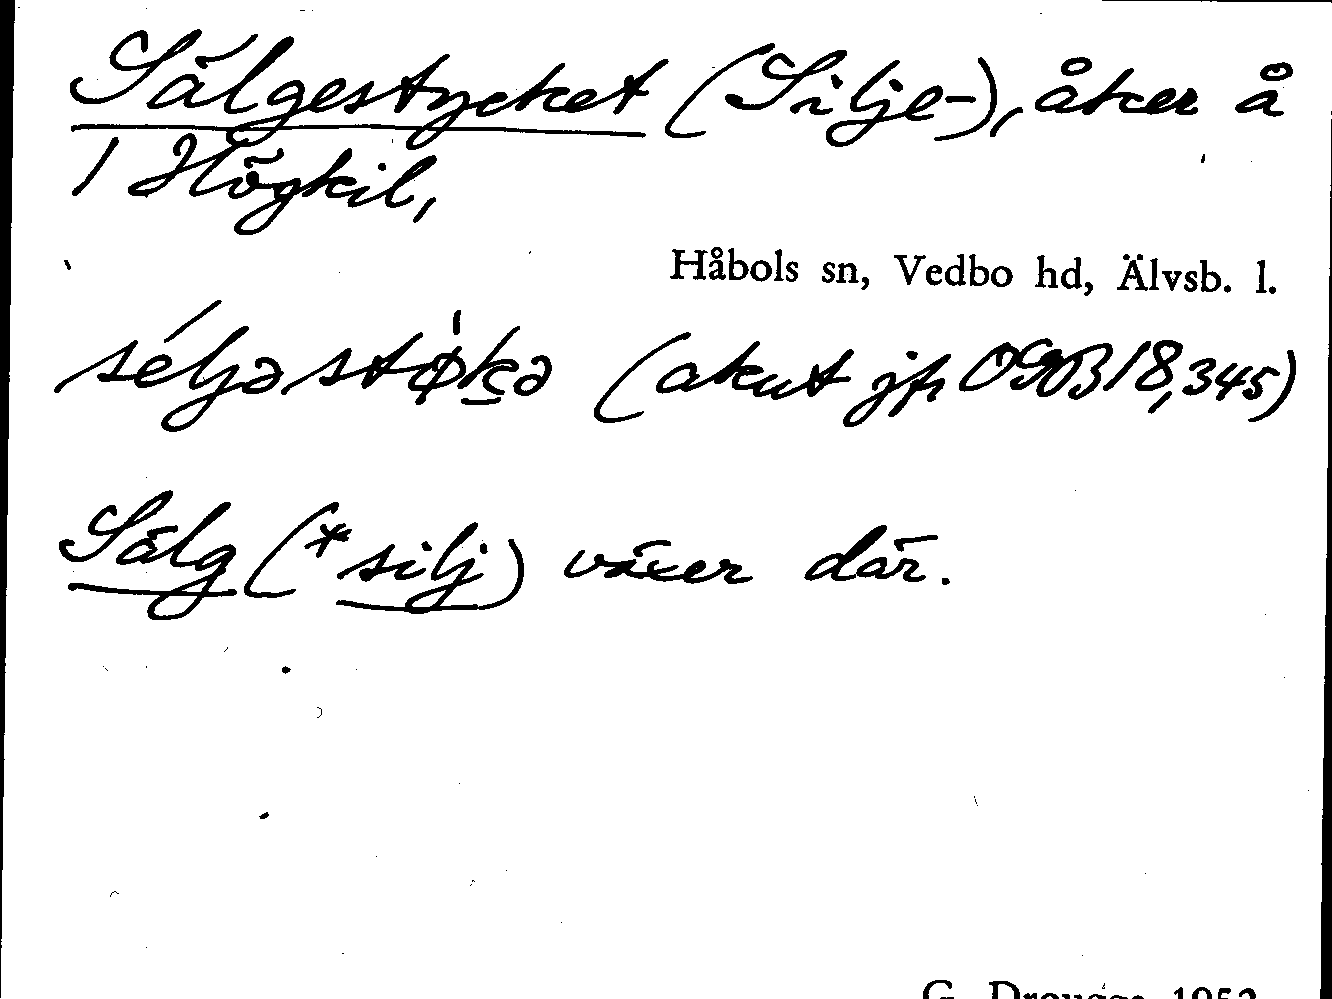 Sälgestycket (Silje-), åker å
1 Högkil,
Håbols sn, Vedbo hd, Älvsb. l.
séljəstø̀k̯ə (akut jfr 090318,345)
Sälg (*silj) växer där.
G. Drougge 1952